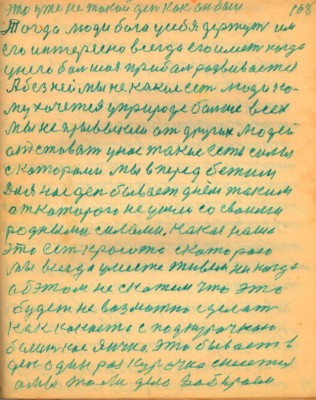 это уже не такой ден как он был 168
Тогда люди бога у себя держут им
его интересно всегда
у него развивается
А без ней мы не какие ест люди ко
му хочется у природе больше всех
Мы не привыкли от других людей
отставать у нас такие есть силы
с которыми мы в перед бежим
Для нас ден бывает днём таким
от которого не ушли со своими
родными силами. Какая наша
это ест красота с которою
мы всегда умеете живем ни когда
об этом не скажем что это
будет не возможно сделать
как какаета с под курочкаю
беленькае яичко. Это бывает в
ден один раз курочка снесется
а мы забираем